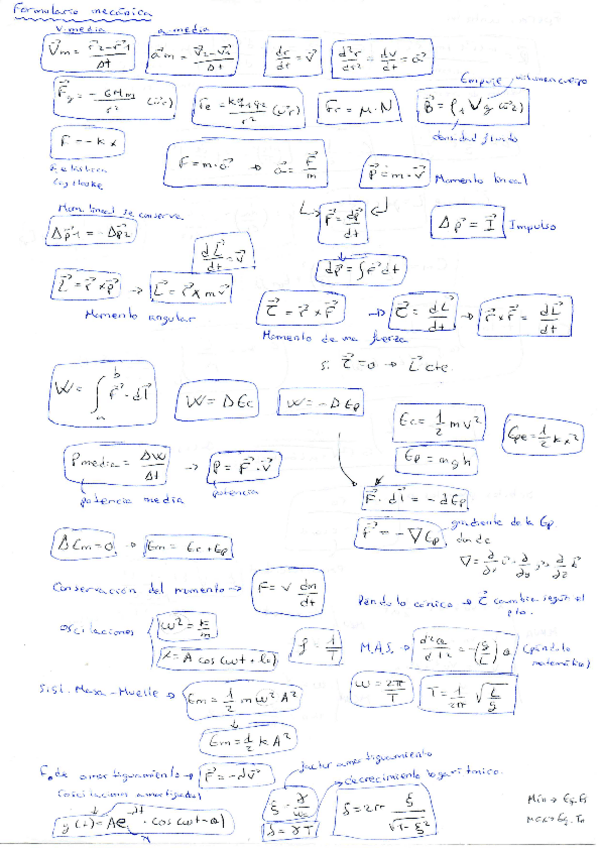 Formulario mecánica
V. media a media
V⃗m = (r⃗2 - r⃗1)/Δt a⃗m = (V⃗2 - V⃗1)/Δt dr⃗/dt = v⃗ d²r⃗/dt² = dv⃗/dt = a⃗
Empuje volumen cuerpo
F⃗g = -GMm/r² (u⃗r) Fe = K q1 q2/r² (u⃗r) Fr = μ·N B⃗ = ρf V g⃗
densidad fluido
F = -k x
F = m·a⃗ → a⃗ = F⃗/m p⃗ = m·v⃗ Momento lineal
F. elástica
Ley Hooke
Mom. lineal se conserva
Δp⃗1 = -Δp⃗2 F⃗ = dp⃗/dt Δp⃗ = I⃗ Impulso
dL⃗/dt = dp⃗ = ∫F⃗dt
L⃗ = r⃗ x p⃗ → L⃗ = r⃗ x m v⃗
Momento angular
τ⃗ = r⃗ x F⃗ → τ⃗ = dL⃗/dt → r⃗ x F⃗ = dL⃗/dt
Momento de una fuerza
Si τ⃗ = 0 → L⃗ cte.
W = ∫ₐᵇ F⃗·dl⃗ W = ΔEc W = -ΔEp Ec = 1/2 m v² Epe = 1/2 k x²
Ep = mgh
Pmedia = ΔW/Δt → P = F⃗·v⃗
potencia media potencia
F⃗·dl⃗ = -dEp
F⃗ = -∇Ep gradiente de la Ep
donde
ΔEm = 0 → Em = Ec + Ep
∇ = ∂/∂x i⃗ + ∂/∂y j⃗ + ∂/∂z k⃗
Conservación del momento → F = v dm/dt
Péndulo cónico → L⃗ cambia según el
pto.
Oscilaciones ω² = k/m
x = A cos(ωt + ) f = 1/T M.A.S. → d²θ/dt² = -(g/L) θ (péndulo
matemático)
Sist. Masa-Muelle → Em = 1/2 m ω² A² ω = 2π/T T = 1/2π √(L/g)
Em = 1/2 k A²
F. de amortiguamiento → F⃗ = -dv⃗
(oscilaciones amortiguadas)
factor amortiguamiento
decrecimiento logarítmico.
ξ = γ/ω₀ δ = 2π ξ/√(1-ξ²)
δ = γT
y(t) = Ae · cos(ωt-θ)
Min → Eq. Es
Max → Eq. In